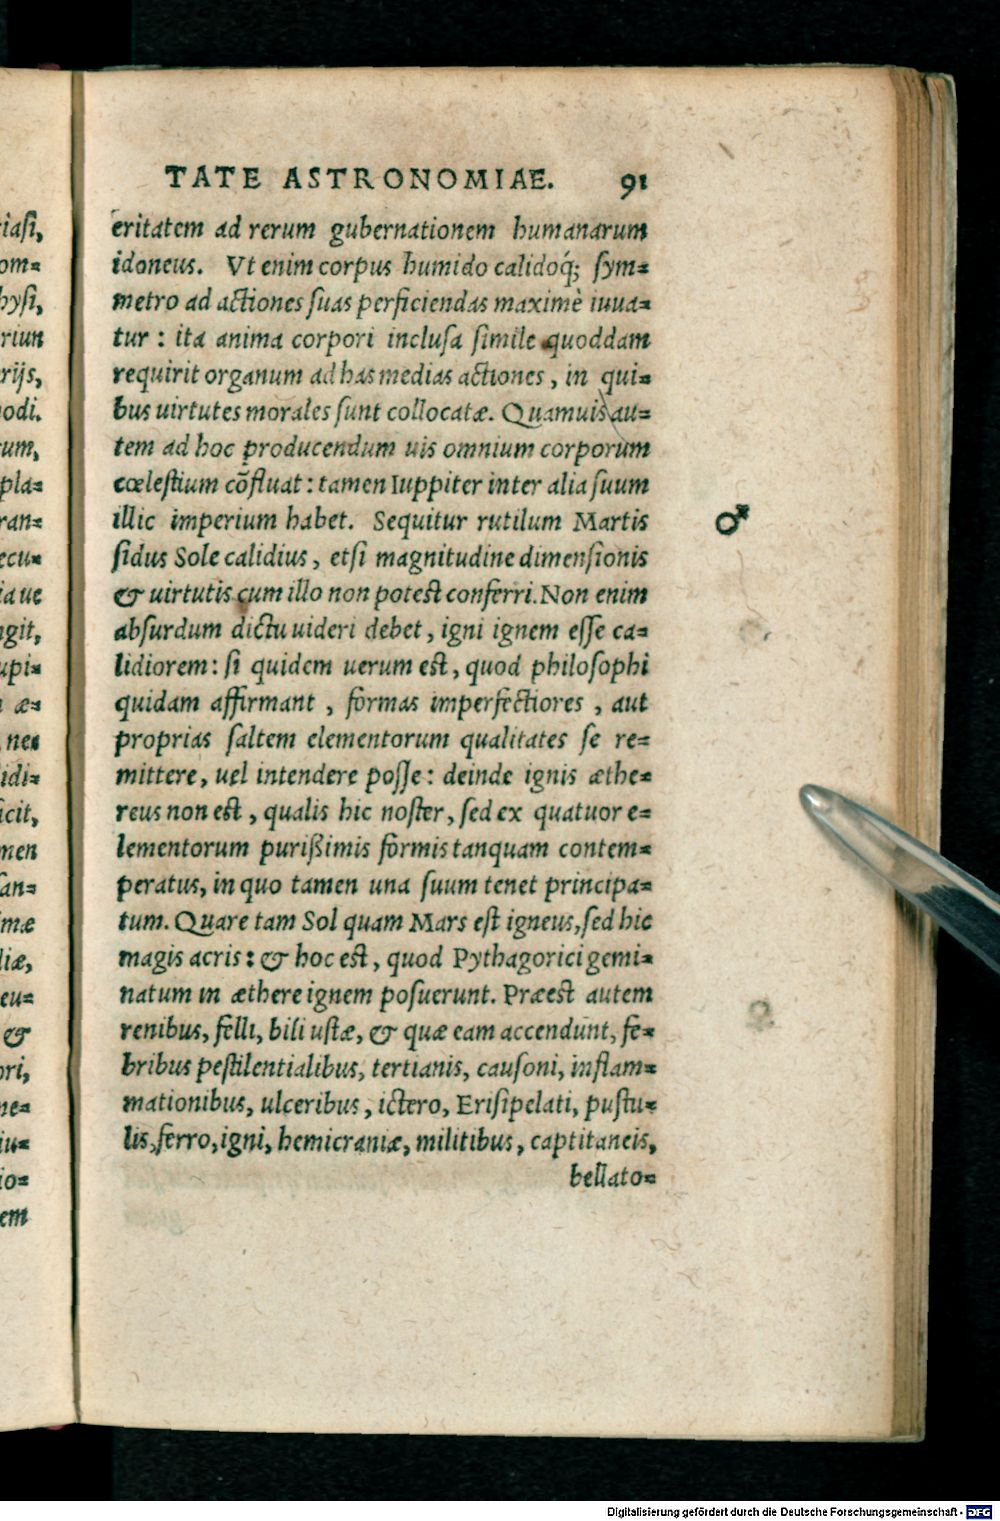 TATE ASTRONOMIAE. 91
eritatem ad rerum gubernationem humanarum
idoneus. Vt enim corpus humido calidoq́; sym=
metro ad actiones suas perficiendas maximè iuua=
tur : ita anima corpori inclusa simile quoddam
requirit organum ad has medias actiones, in qui=
bus uirtutes morales sunt collocatæ. Quamuis au=
tem ad hoc producendum uis omnium corporum
cœlestium cõfluat : tamen Iuppiter inter alia suum
illic imperium habet. Sequitur rutilum Martis
♂
sidus Sole calidius, etsi magnitudine dimensionis
& uirtutis cum illo non potest conferri. Non enim
absurdum dictu uideri debet, igni ignem esse ca=
lidiorem: si quidem uerum est, quod philosophi
quidam affirmant, formas imperfectiores, aut
proprias saltem elementorum qualitates se re=
mittere, uel intendere posse: deinde ignis æthe=
reus non est, qualis hic noster, sed ex quatuor e=
lementorum purißimis formis tanquam contem=
peratus, in quo tamen una suum tenet principa=
tum. Quare tam Sol quam Mars est igneus, sed hic
magis acris: & hoc est, quod Pythagorici gemi=
natum in æthere ignem posuerunt. Præest autem
renibus, felli, bili ustæ, & quæ eam accendunt, fe=
bribus pestilentialibus, tertianis, causoni, inflam=
mationibus, ulceribus, ictero, Erisipelati, pustu=
lis, ferro, igni, hemicraniæ, militibus, captitaneis,
bellato=
iasi,
om=
hysi,
riun
rijs,
odi.
um,
pla=
ran=
ecu=
ia ue
ngit,
upi=
æ=
nec
idi=
icit,
men
san=
imæ
liæ,
eu=
&
ori,
ne=
iu=
io=
em
Digitalisierung gefördert durch die Deutsche Forschungsgemeinschaft - DFG